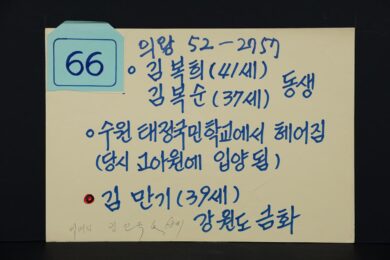 66
의왕 52-2757
김복희(41세)
김복순(37세) 동생
수원 태장국민학교에서 헤어짐
(당시 고아원에 입양됨)
김만기(39세)
강원도 금화